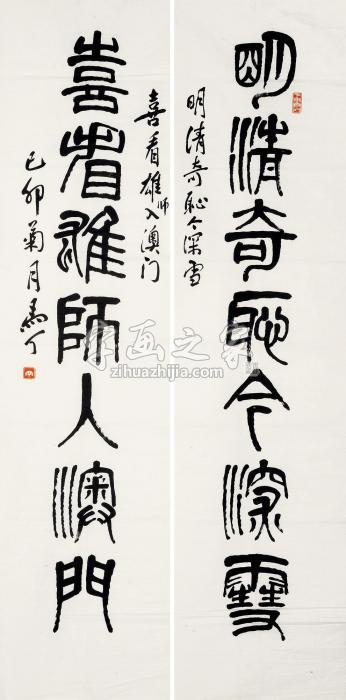 明清奇恥今深雪
明清奇恥今深雪
喜看雄師入澳門
喜看雄师入澳门
己卯菊月
字画之家
zihuazhijia.com